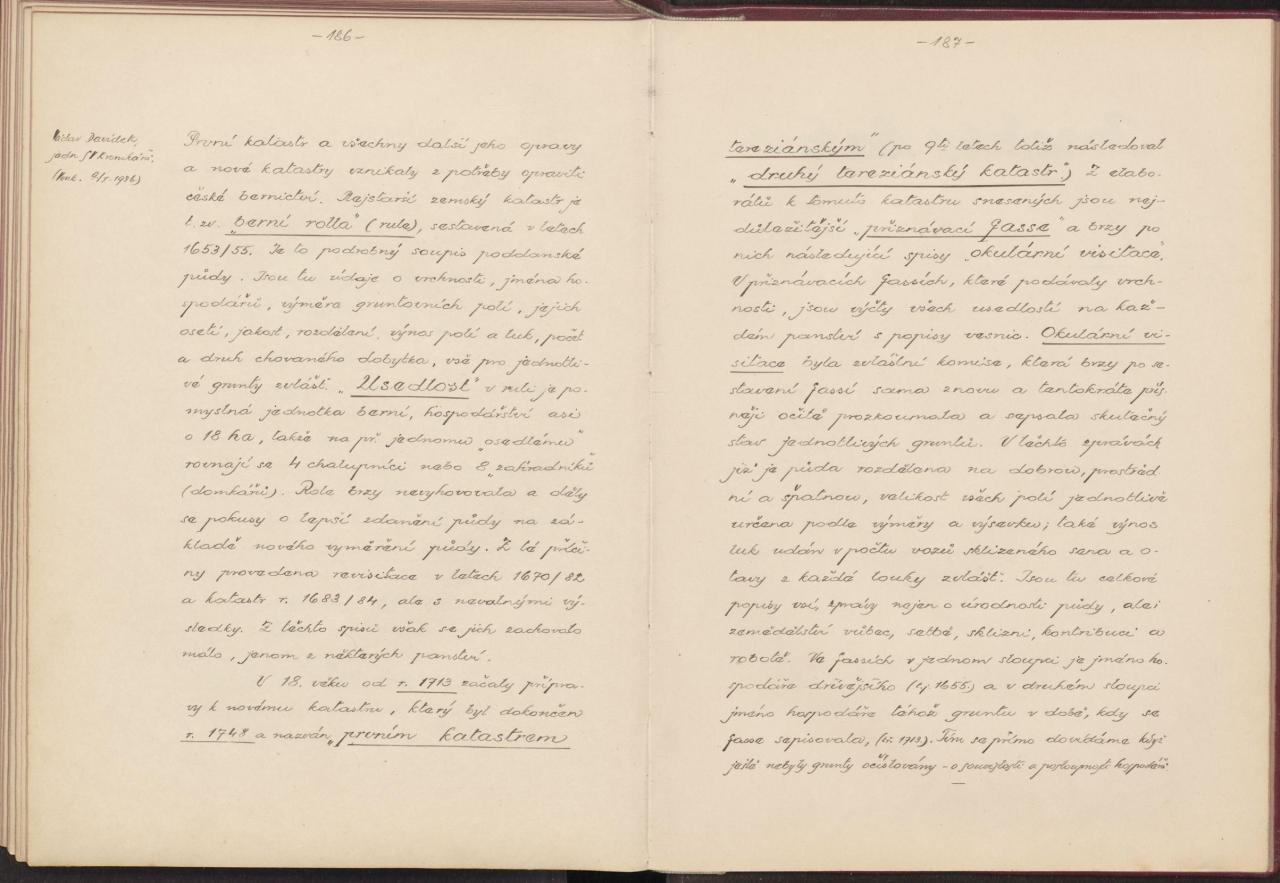 -186-
Václav Davídek,
jedn. ST Kronikářů.
První katastr a všechny další jeho opravy
a nové katastry vznikaly z potřeby opraviti
české bernictví. Nejstarší zemský katastr je
t. zv. „berní rolla" (rule), sestavená v letech
1653/55. Je to podrobný soupis poddanské
půdy. Jsou tu údaje o vrchnosti, jména ho-
spodářů, výměra gruntovních polí, jejich
osetí, jakost, rozdělení, výnos polí a luk, počet
a druh chovaného dobytka, vše pro jednotli-
vé grunty zvlášť. „Usedlost" v ruli je po-
myslná jednotka berní, hospodářství asi
o 18 ha, takže na př. jednomu „osedlému"
rovnají se 4 chalupníci nebo 8 „zahradníků"
(domkářů). Role brzy nevyhovovala a děly
se pokusy o lepší zdanění půdy na zá-
kladě nového vyměření půdy. Z té příči-
ny provedena revisitace v letech 1670/82
a katastr r. 1683/84, ale s nevalnými vý-
sledky. Z těchto spisů však se jich zachovalo
málo, jenom z některých panství.
V 18. věku od r. 1713 začaly přípra-
vy k novému katastru, který byl dokončen
r. 1748 a nazván „prvním katastrem
-187-
tereziánským" (po 9ti letech totiž následoval
„druhý tereziánský katastr".) Z elabo-
rátů k tomuto katastru snesených jsou nej-
důležitější „přiznávací fasse" a brzy po
nich následující spisy „okulární visitace".
V přiznávacích fassích, které podávaly vrch-
nosti, jsou výčty všech usedlostí na kaž-
dém panství s popisy vesnic. Okulární vi-
sitace byla zvláštní komise, která brzy po se-
stavení fassí sama znovu a tentokráte přís-
něji očitě prozkoumala a sepsala skutečný
stav jednotlivých gruntů. V těchto zprávách
již je půda rozdělena na dobrou, prostřed
ní a špatnou, velikost všech polí jednotlivě
určena podle výměry a výsevku; také výnos
luk udán v počtu vozů sklizeného sena a o-
tavy z každé louky zvlášť. Jsou tu celkové
popisy vsí, zprávy nejen o úrodnosti půdy, ale i
zemědělství vůbec, setbě, sklizni, kontribuci a
robotě. Ve fassích v jednom sloupci je jméno ho-
spodáře dřívějšího (t.j. 1655) a v druhém sloupci
jméno hospodáře téhož gruntu v době, kdy se
fasse sepisovala, (t.j. 1713). Tím se přímo dovídáme když
ještě nebyly grunty očíslovány - o souvislosti a posloupnosti hospodářů.